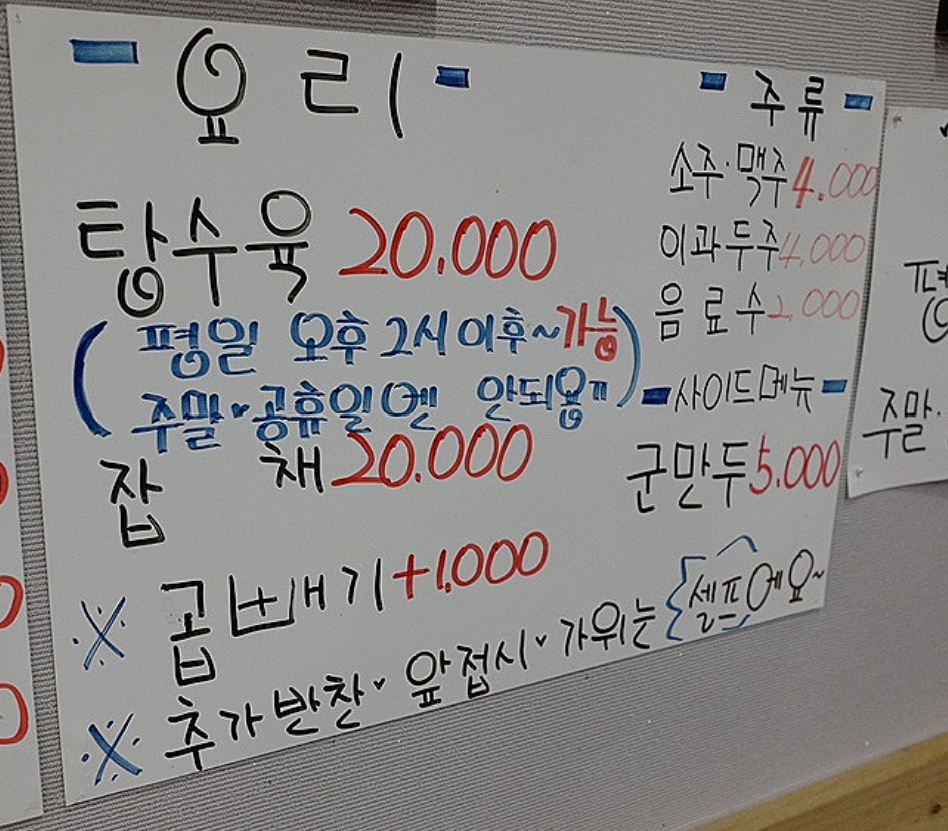 - 요리 -
탕수육 20.000
( 평일 오후 2시 이후~가능
주말·공휴일엔 안되욤ㅠ )
잡 채 20.000
※ 곱빼기 +1.000
※ 추가반찬· 앞접시· 가위는 {셀프}에요~
- 주류 -
소주·맥주 4.000
이과두주 4.000
음료수 2.000
- 사이드메뉴 -
군만두 5.000
주말·